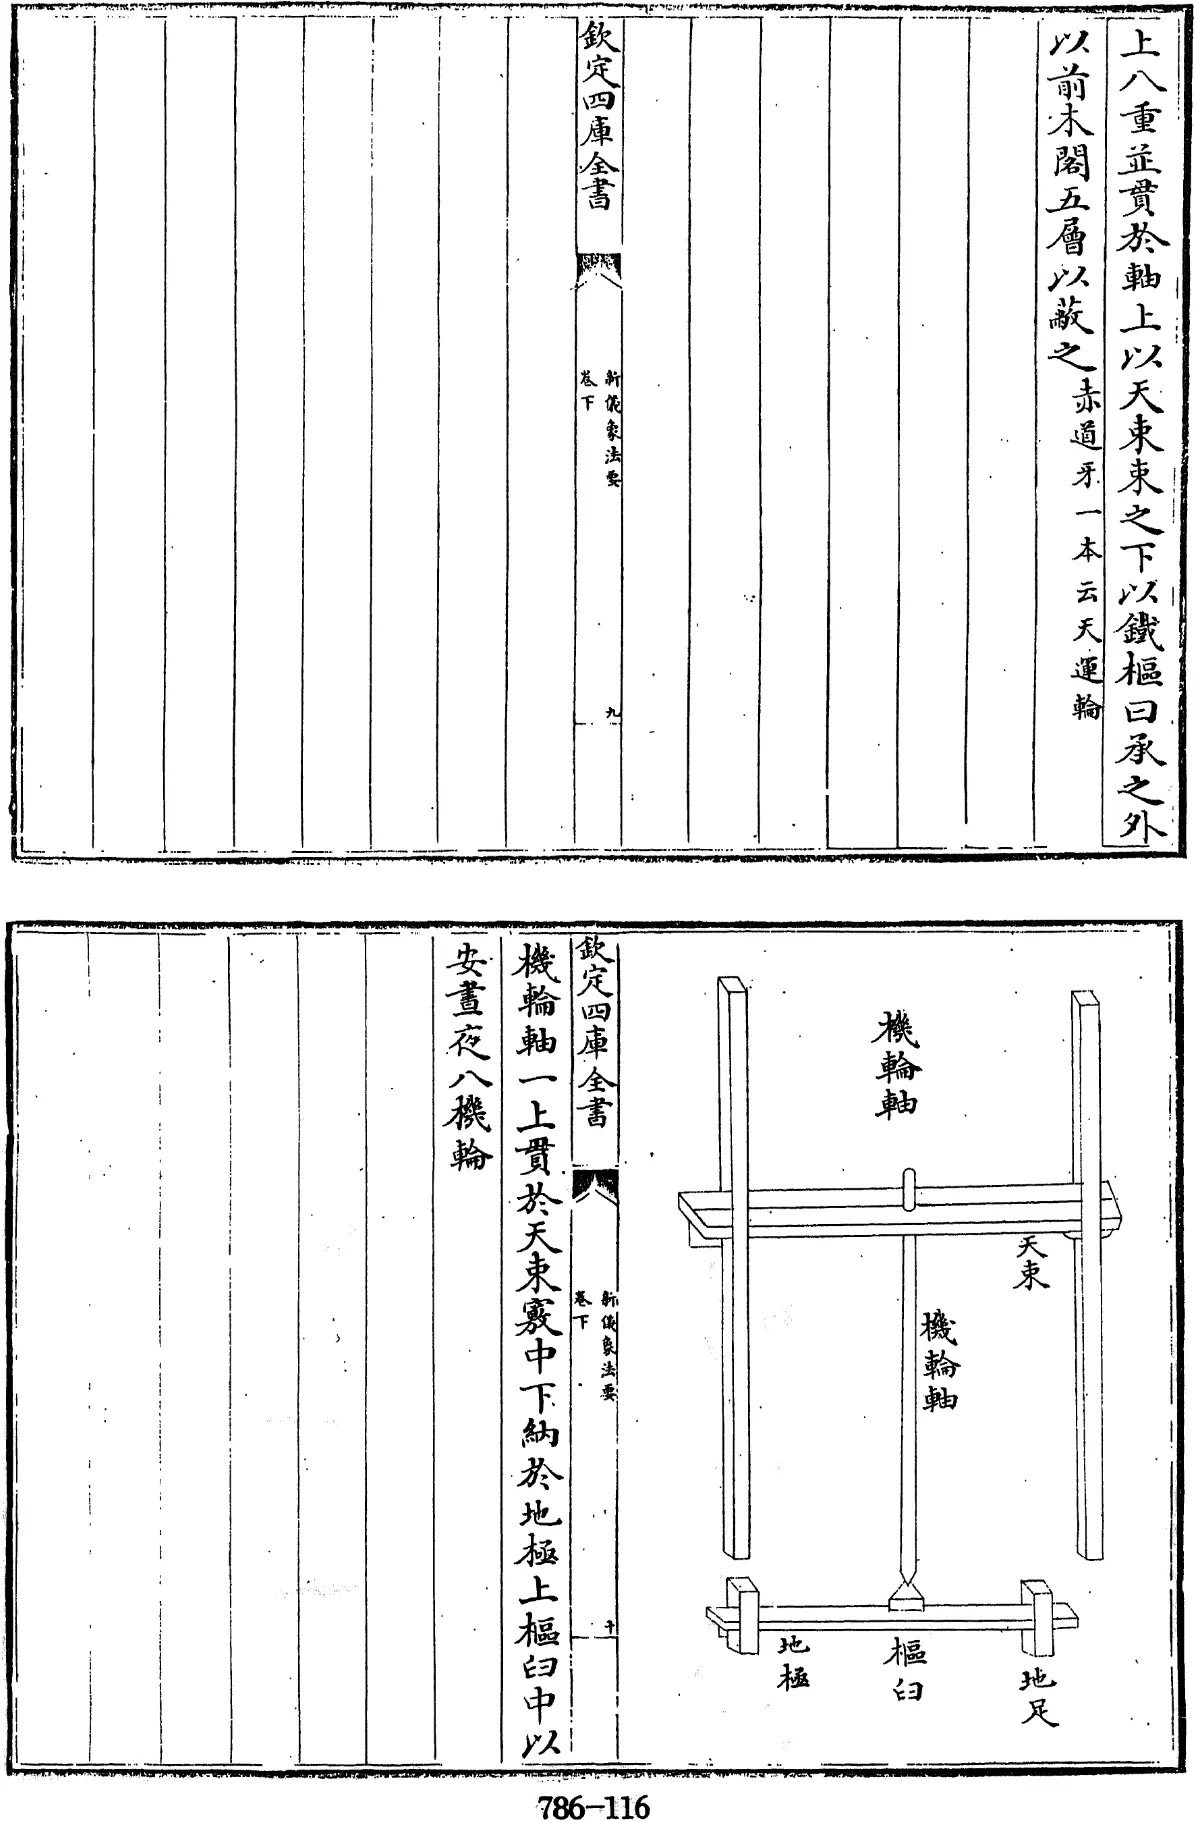 上八重並貫於軸上以天束束之下以鐵樞臼承之外
以前木閣五層以蔽之赤道牙一本云天運輪
欽定四庫全書
新儀象法要
卷下
九
機輪軸
天束
機輪軸
地極
樞臼
地足
欽定四庫全書
新儀象法要
卷下
十
機輪軸一上貫於天束竅中下納於地極上樞臼中以
安晝夜八機輪
786-116